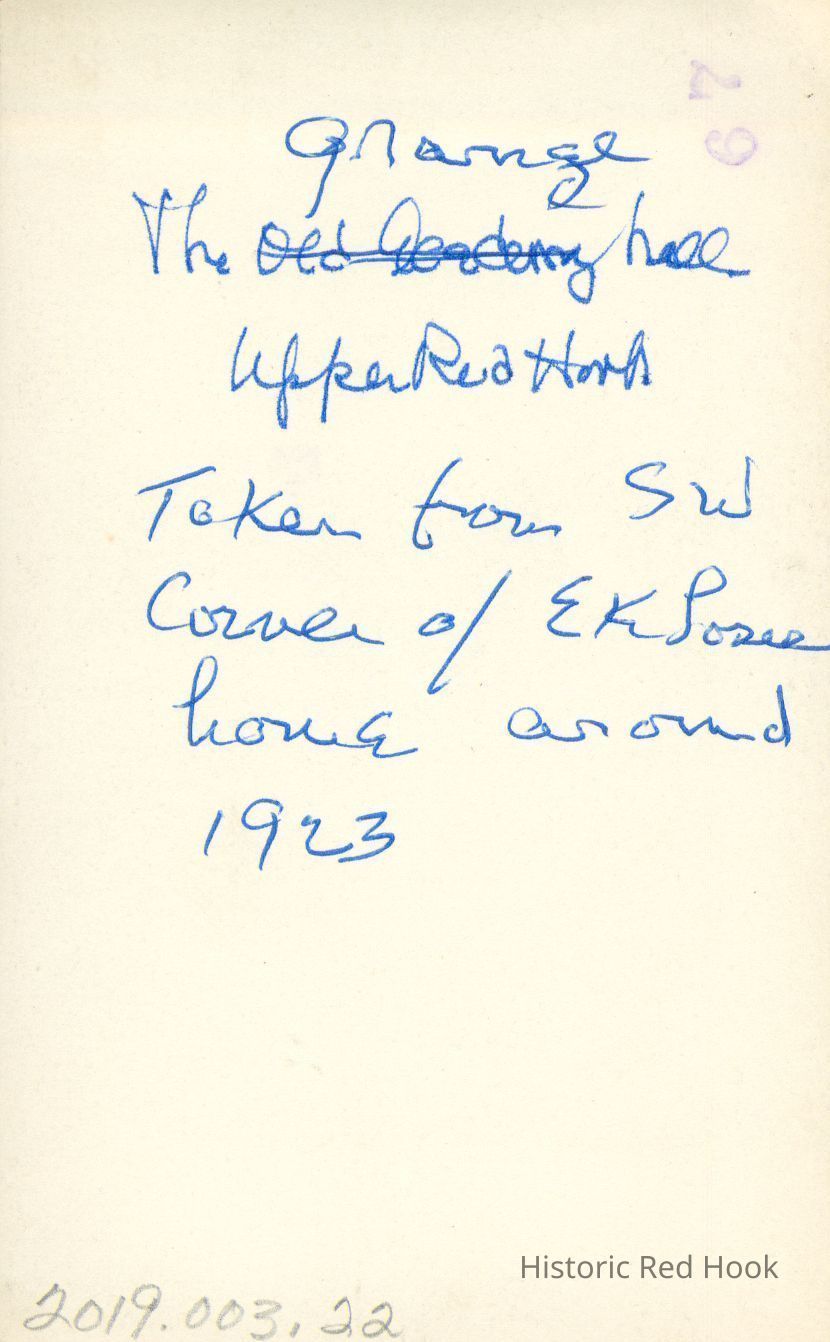 Grange
The Old Academy hall
Upper Red Hook
Taken from SW
Corner of EK
home around
1923
Historic Red Hook
2019.003.22